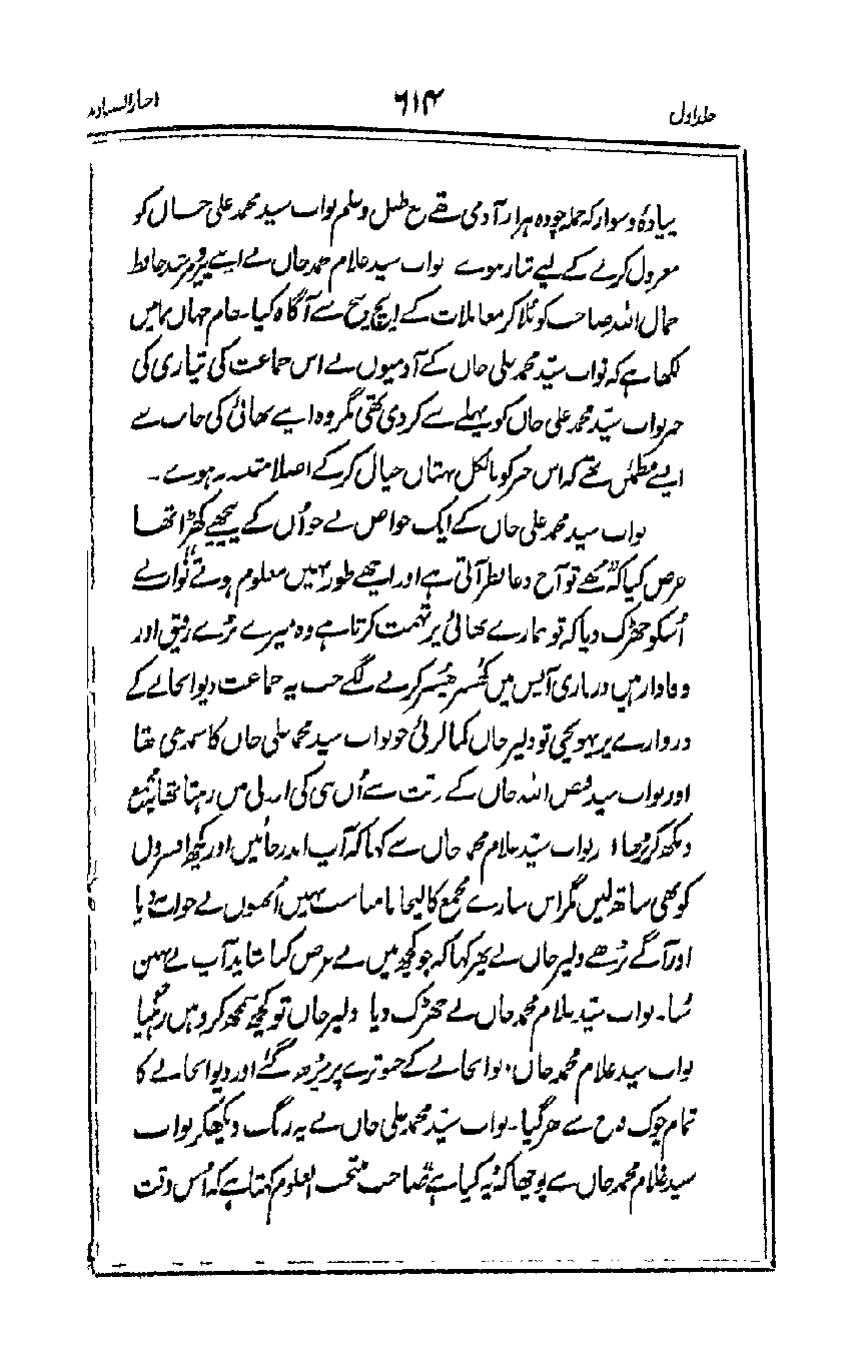 جلد اول ۶۱۴ اخبار الصنادید
پیادۂ و سوار کہ جملہ چودہ ہزار آدمی تھے مع طبل و علم نواب سید محمد علی خاں کو
معزول کرنے کے لیے تیار ہوے نواب سید غلام محمد خاں نے اپنے پیر و مرشد حافظ
جمال اللہ صاحب کو بلا کر معاملات کے اونچ نیچ سے آگاہ کیا۔ جام جہاں نما میں
لکھا ہے کہ نواب سید محمد علی خاں کے آدمیوں نے اس جماعت کی تیاری کی
خبر نواب سید محمد علی خاں کو پہلے سے کر دی تھی مگر وہ اپنے بھائی کی جانب سے
ایسے مطمئن تھے کہ اس خبر کو بالکل بہتان خیال کر کے اصلا متنبہ نہ ہوے۔
نواب سید محمد علی خاں کے ایک خواص نے جو اُن کے پیچھے کھڑا تھا
عرض کیا کہ "مجھے تو آج دغا نظر آتی ہے اور اچھے طور نہیں معلوم ہوتے" نواب نے
اُسکو جھڑک دیا کہ تو ہمارے بھائی پر تہمت کرتا ہے وہ میرے بڑے رفیق اور
وفادار ہیں درباری آپس میں کُھسر پُھسر کرنے لگے جب یہ جماعت دیوانخانے کے
دروازے پر پہونچی تو دلیر خاں کمالزئی جو نواب سید محمد علی خاں کا سمدھی تھا
اور نواب سید فیض اللہ خاں کے وقت سے اُن ہی کی اردلی میں رہتا تھا یہ مجمع
دیکھ کر بڑھا اور نواب سید غلام محمد خاں سے کہا کہ آپ اندر جائیں اور کچھ افسروں
کو بھی ساتھ لیں مگر اس سارے مجمع کا لیجانا مناسب نہیں اُنھوں نے جواب نہ دیا
اور آگے بڑھے دلیر خاں نے پھر کہا کہ جو کچھ میں نے عرض کیا شاید آپ نے نہیں
سُنا۔ نواب سید غلام محمد خاں نے جھڑک دیا دلیر خاں تو کچھ سمجھ کر وہیں رہ گیا
نواب سید غلام محمد خاں دیوانخانے کے چبوترے پر چڑھ گئے اور دیوانخانے کا
تمام چوک فوج سے بھر گیا۔ نواب سید محمد علی خاں نے یہ رنگ دیکھکر نواب
سید غلام محمد خاں سے پوچھا کہ "یہ کیا ہے" صاحب منتخب العلوم کہتا ہے کہ اُس وقت